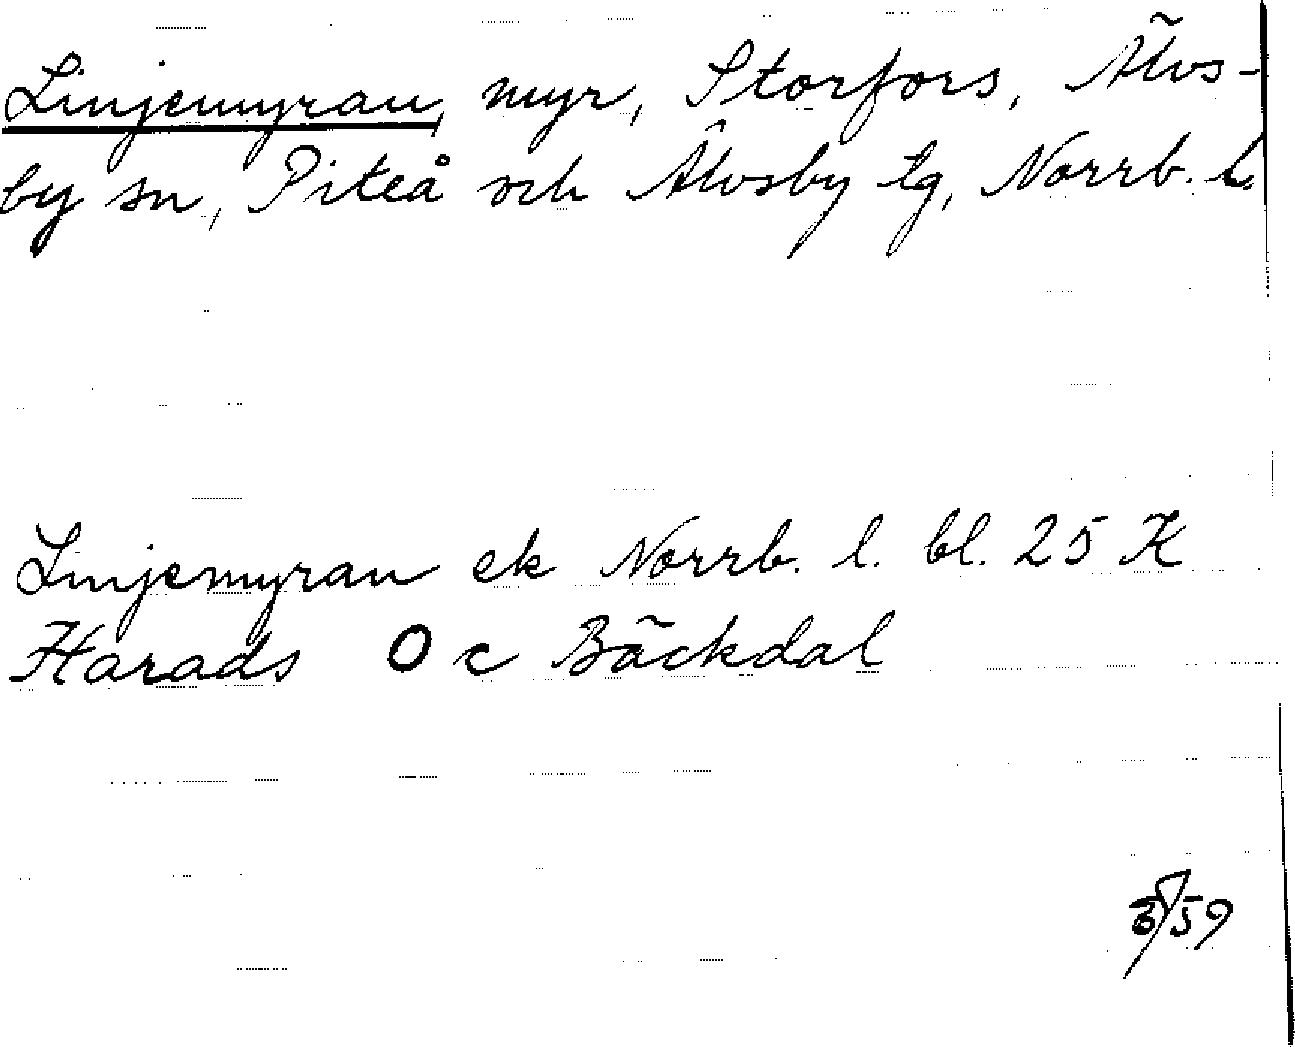 Linjemyran, myr, Storfors, Älvs-
by sn, Piteå och Älvsby tg, Norrb. l.
Linjemyran ek Norrb. l. bl. 25 K
Harads O c Bäckdal